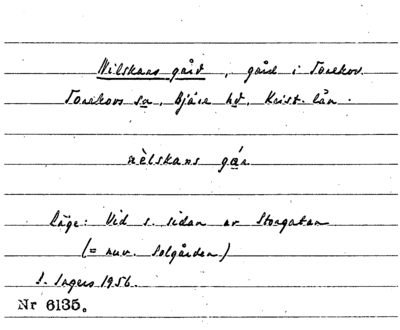 Nilskans gård, gård i Torekov.
Torekovs sn, Bjäre hd, Krist. län.
nèlskans gár
Läge: Vid s. sidan av Storgatan
(= nuv. Solgården)
I. Ingers 1956.
Nr 6135.